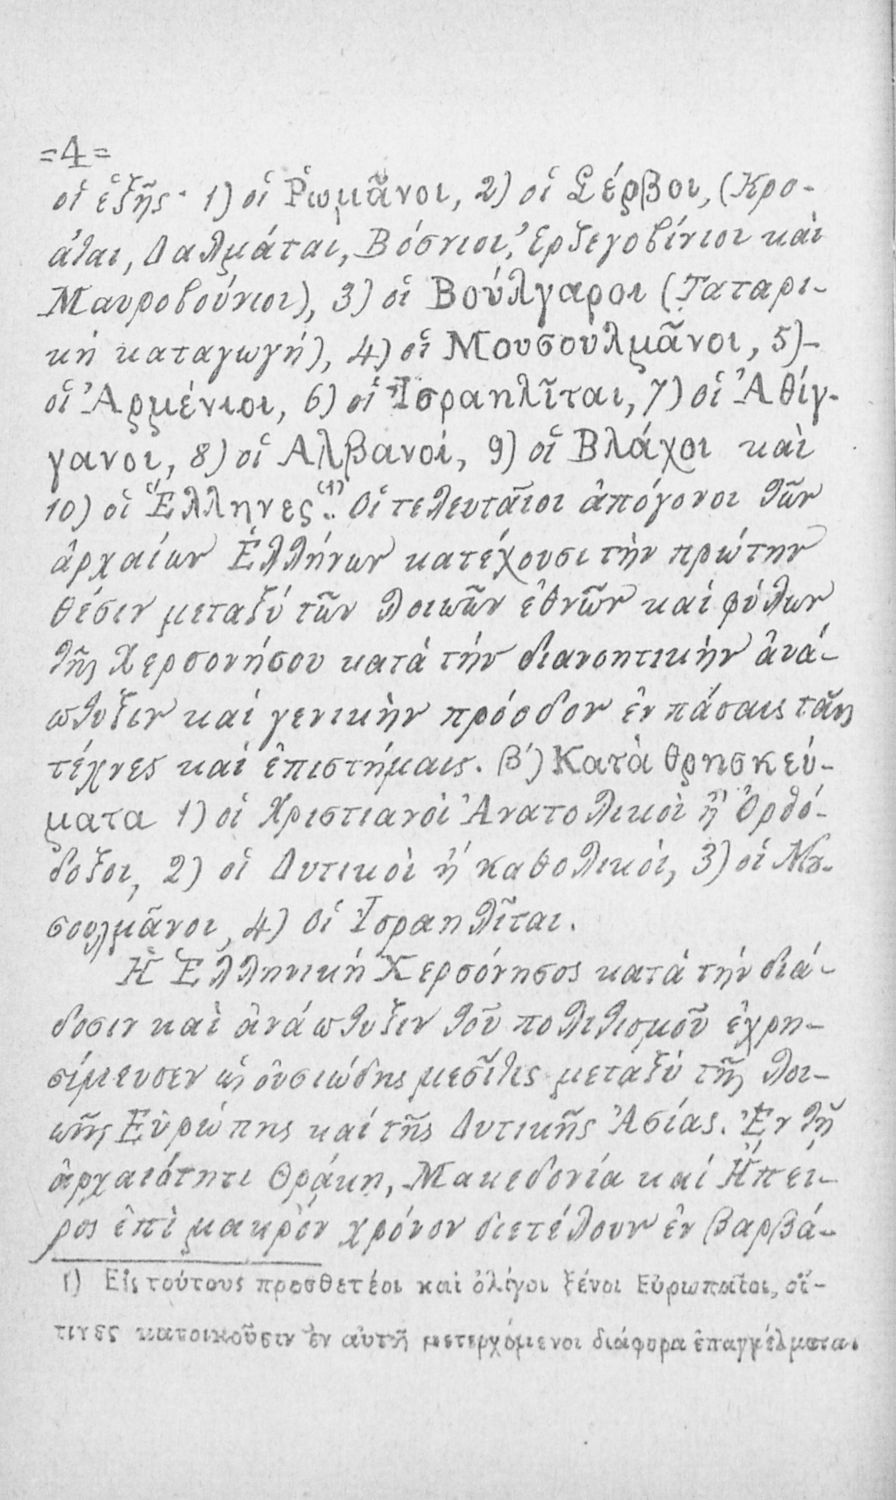 =4=
οἱ ἑξῆς· 1) οἱ Ῥωμᾶνοι, 2) οἱ Σέρβοι, (Κρο-
άται, Δαλμάται, Βόσνιοι, Ἐρζεγοβίνιοι καὶ
Μαυροβούνιοι), 3) οἱ Βούλγαροι (Ταταρι-
κὴ καταγωγή), 4) οἱ Μουσουλμᾶνοι, 5)-
οἱ Ἀρμένιοι, 6) οἱ Ἰσραηλῖται, 7) οἱ Ἀθίγ-
γανοι, 8) οἱ Αλβανοί, 9) οἱ Βλάχοι καὶ
10) οἱ Ἕλληνες(1). Οἱ τελευταῖοι ἀπόγονοι τῶν
ἀρχαίων Ἑλλήνων κατέχουσι τὴν πρώτην
θέσιν μεταξύ τῶν λοιπῶν ἐθνῶν καί φύλων
τῆς Χερσονήσου κατά τήν διανοητικὴν ἀνά-
πτυξιν καί γενικὴν πρόοδον ἐν πάσαις ταῖς
τέχνες καὶ ἐπιστήμαις. β′) Κατὰ θρησκεύ-
ματα 1) οἱ Χριστιανοὶ Ἀνατολικοὶ ἢ Ὀρθό-
δοξοι, 2) οἱ Δυτικοὶ ἢ καθολικοί, 3) οἱ Μȣ-
σουλμᾶνοι, 4) Οἱ Ἰσραηλῖται.
Ἡ Ἑλληνική Χερσόνησος κατά τήν διά-
δοσιν καὶ ἀνάπτυξιν τοῦ πολιτισμοῦ ἐχρη-
σίμευσεν ὡς οὐσιώδης μεσῖτις μεταξύ τῆς λοι-
πῆς Εὐρώπης καί τῆς Δυτικῆς Ἀσίας. Ἐν τῇ
ἀρχαιότητι Θράκη, Μακεδονία καί Ἤπει-
ρος ἐπὶ μακρὸν χρόνον διετέλουν ἐν βαρβά-
1) Εἰς τούτους προσθετέοι καὶ ὀλίγοι ξένοι Εὐρωπαῖοι, οἵ-
τινες κατοικοῦσιν ἐν αὐτῇ μετερχόμενοι διάφορα ἐπαγγέλματα.